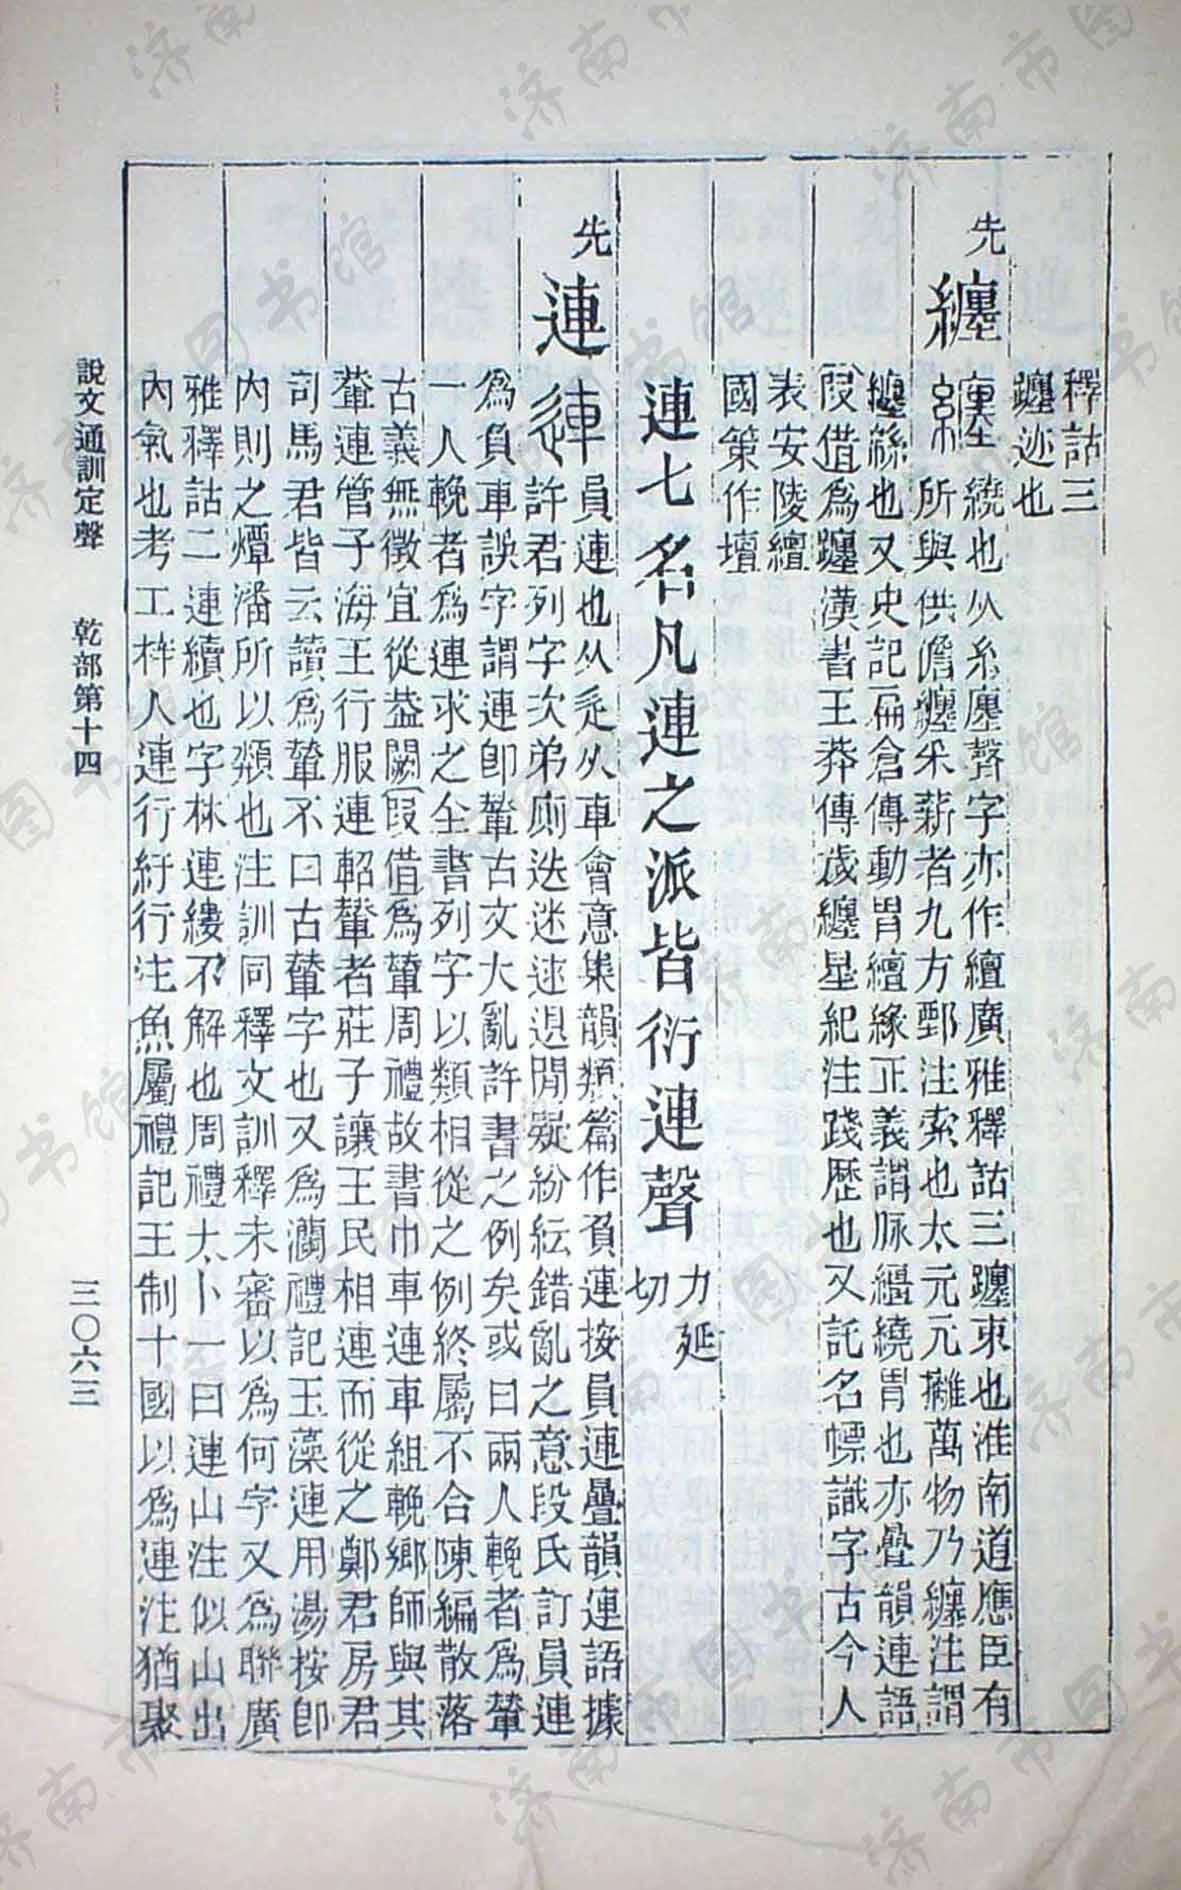 釋詁三
躔迹也
先
纏
纏
繞也从糸廛聲字亦作繵廣雅釋詁三躔束也淮南道應臣有
所與供儋纏采薪者九方鄄注索也太元元攡萬物乃纏注謂
纏緜也又史記扁倉傳動胃繵緣正義謂脈纏繞胃也亦疊韻連語
叚借爲躔漢書王莽傳歲纏星紀注踐歷也又託名幖識字古今人
表安陵繵
國策作壇
連七名凡連之派皆衍連聲
力延
切
先
連
連
員連也从辵从車會意集韻類篇作負連按員連疊韻連語據
許君列字次弟廁迭迷逑退間疑紛紜錯亂之意段氏訂員連
爲負車誤字謂連卽輦古文大亂許書之例矣或曰兩人輓者爲輦
一人輓者爲連求之全書列字以類相從之例終屬不合陳編散落
古義無徵宜從葢闕叚借爲輦周禮故書巾車連車組輓鄉師與其
輂連管子海王行服連軺輂者莊子讓王民相連而從之鄭君房君
司馬君皆云讀爲輦不曰古輦字也又爲瀾禮記玉藻連用湯按卽
內則之燂潘所以頮也注訓同釋文訓釋未審以爲何字又爲聯廣
雅釋詁二連續也字林連縷不解也周禮太卜一曰連山注似山出
內氣也考工梓人連行紆行注魚屬禮記王制十國以爲連注猶聚
說文通訓定聲　乾部第十四　三〇六三
濟南市图书馆